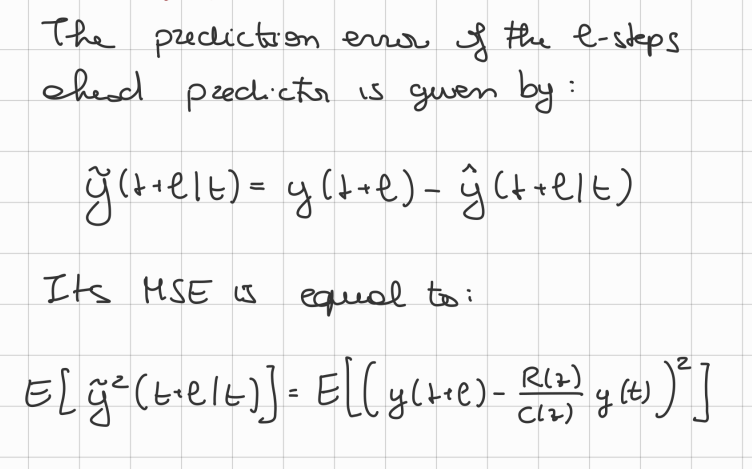 The prediction error of the ℓ-steps
ahead predictor is given by:
ỹ(t+ℓ|t) = y(t+ℓ) - ŷ(t+ℓ|t)
Its MSE is equal to:
E[ỹ²(t+ℓ|t)] = E[(y(t+ℓ) - R(z)/C(z) y(t))²]